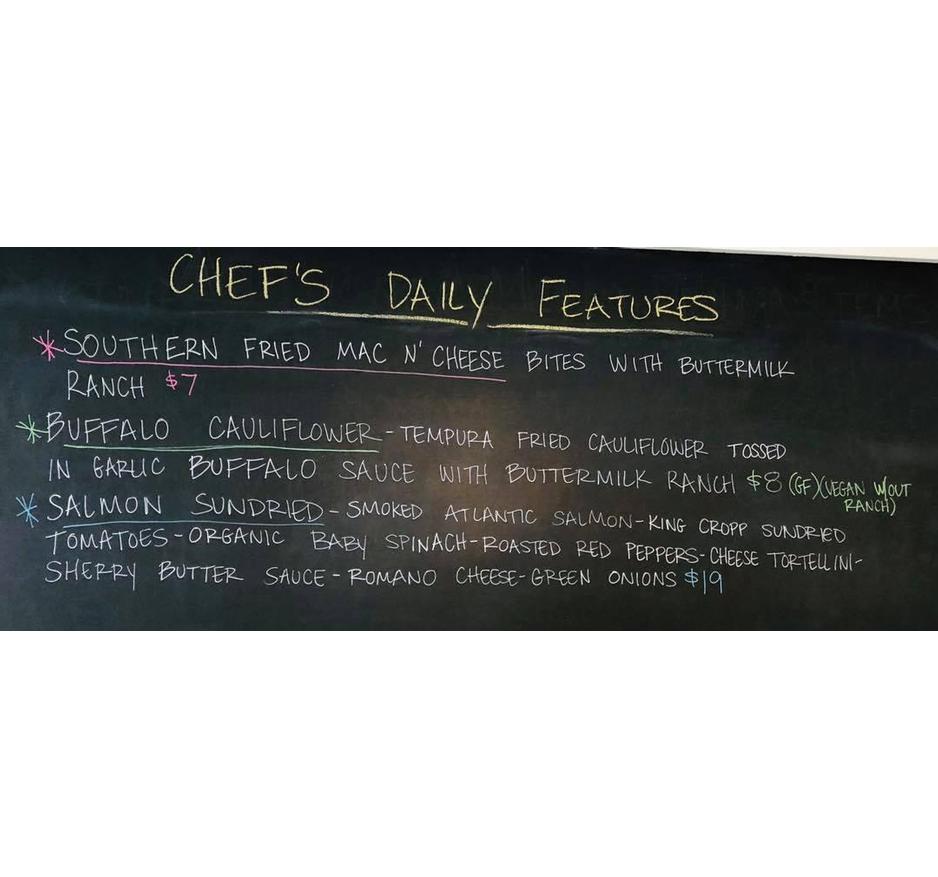 CHEF'S DAILY FEATURES
*SOUTHERN FRIED MAC N' CHEESE BITES WITH BUTTERMILK
RANCH $7
*BUFFALO CAULIFLOWER-TEMPURA FRIED CAULIFLOWER TOSSED
IN GARLIC BUFFALO SAUCE WITH BUTTERMILK RANCH $8 (GF)(VEGAN W/OUT
RANCH)
*SALMON SUNDRIED-SMOKED ATLANTIC SALMON-KING CROPP SUNDRIED
TOMATOES-ORGANIC BABY SPINACH-ROASTED RED PEPPERS-CHEESE TORTELLINI-
SHERRY BUTTER SAUCE-ROMANO CHEESE-GREEN ONIONS $19